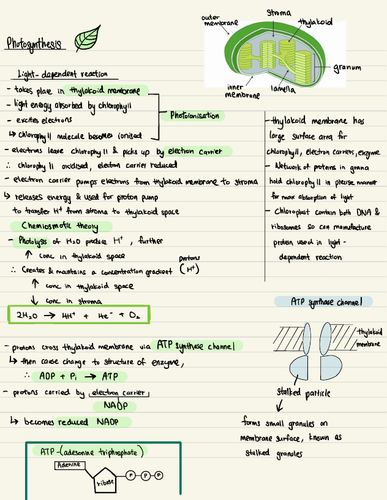 Photosynthesis
outer membrane
stroma
thylakoid
granum
inner membrane
lamella
Light-dependent reaction
- takes place in thylakoid membrane
- light energy absorbed by chlorophyll
- excites electrons
↳ chlorophyll molecule becomes ionised
Photoionisation
- electrons leave chlorophyll & picks up by electron carrier
∴ chlorophyll oxidised, electron carrier reduced
- electron carrier pumps electrons from thylakoid membrane to stroma
↳ releases energy & used for proton pump
to transfer H⁺ from stroma to thylakoid space
Chemiosmotic theory
- Photolysis of H₂O produce H⁺, further
↑ conc in thylakoid space
∴ Creates & maintains a concentration gradient (H⁺)
protons
↑ conc in thylakoid space
↓ conc in stroma
2H₂O → 4H⁺ + 4e⁻ + O₂
- protons cross thylakoid membrane via ATP synthase channel
↳ then cause change to structure of enzyme,
∴ ADP + Pi → ATP
- protons carried by electron carrier
NADP
↳ becomes reduced NADP
ATP - (adenosine triphosphate)
Adenine
ribose
P P P
- thylakoid membrane has
large surface area for
chlorophyll, electron carriers, enzyme
- Network of proteins in grana
hold chlorophyll in precise manner
for max absorption of light
- Chloroplast contain both DNA &
ribosomes so can manufacture
protein used in light-
dependent reaction
ATP synthase channel
thylakoid membrane
stalked particle
forms small granules on
membrane surface, known as
stalked granules